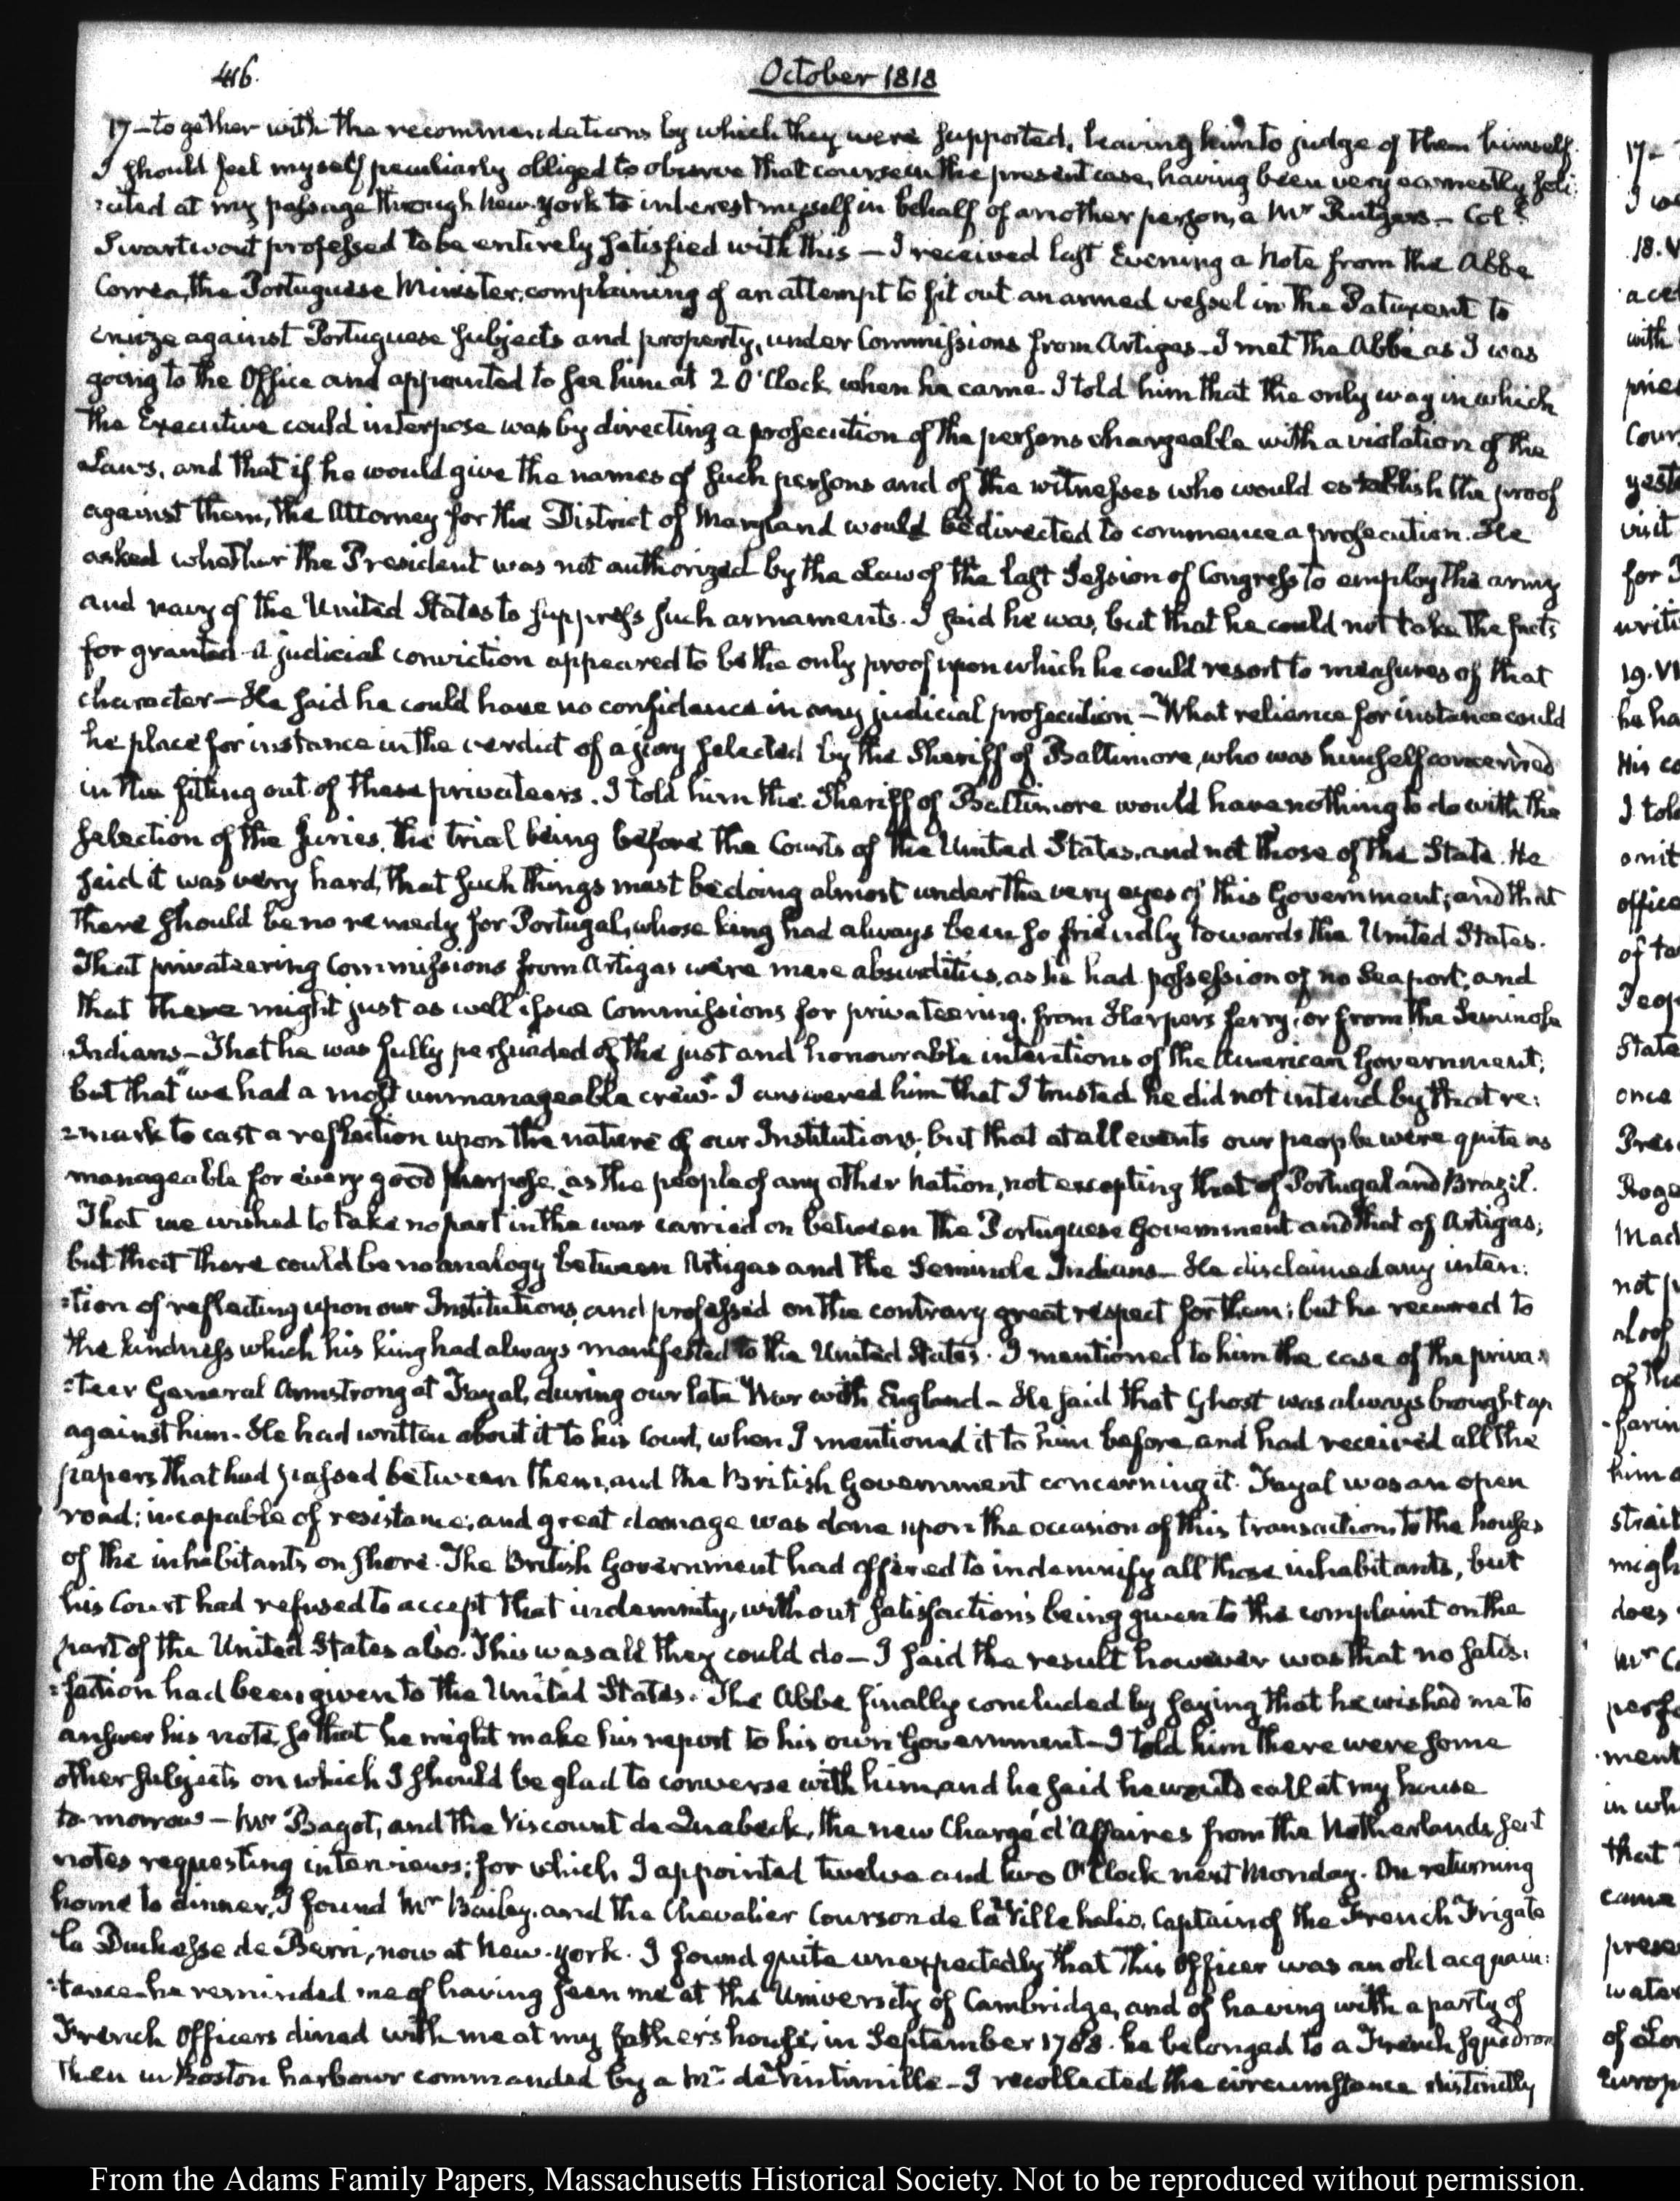 416.
October 1818
17 — together with the recommendations by which they were supported, leaving him to judge of them himself.
I should feel myself peculiarly obliged to observe that course in the present case, having been very earnestly soli:
:cited at my passage through New-York to interest myself in behalf of another person, a Mr Rutgers — Coll
Swartwout professed to be entirely satisfied with this — I received last Evening a Note from the Abbe
Correa, the Portuguese Minister, complaining of an attempt to fit out an armed vessel in the Patuxent to
cruize against Portuguese subjects and property, under Commissions from Artigas — I met the Abbé as I was
going to the Office and appointed to see him at 2 O'Clock when he came. I told him that the only way in which
the Executive could interpose was by directing a prosecution of the persons chargeable with a violation of the
Laws, and that if he would give the names of such persons and of the witnesses who would establish the proof
against them, the Attorney for the District of Maryland would be directed to commence a prosecution. He
asked whether the President was not authorized by the Law of the last Session of Congress to employ the army
and navy of the United States to suppress such armaments. I said he was, but that he could not take the facts
for granted. A judicial conviction appeared to be the only proof upon which he could resort to measures of that
character — He said he could have no confidence in any judicial prosecution — What reliance for instance could
he place for instance in the verdict of a jury selected by the Sheriff of Baltimore, who was himself concerned
in the fitting out of these privateers. I told him the Sheriff of Baltimore would have nothing to do with the
selection of the Juries, the trial being before the Courts of the United States, and not those of the State. He
said it was very hard, that such things must be doing almost under the very eyes of this Government; and that
there should be no remedy for Portugal, whose king had always been so friendly towards the United States.
That privateering Commissions from Artigas were mere absurdities, as he had possession of no Seaport; and
that there might just as well issue Commissions for privateering, from Harpers ferry, or from the Seminole
Indians — That he was fully persuaded of the just and honourable intentions of the American Government;
but that "we had a most unmanageable crew" — I answered him that I trusted he did not intend by that re:
:mark to cast a reflection upon the nature of our Institutions; but that at all events our people were quite as
manageable for every good purpose, as the people of any other Nation, not excepting that of Portugal and Brazil.
That we wished to take no part in the war carried on between the Portuguese Government and that of Artigas;
but that there could be no analogy between Artigas and the Seminole Indians — He disclaimed any inten:
:tion of reflecting upon our Institutions, and professed on the contrary great respect for them; but he recurred to
the kindness which his king had always manifested to the United States. I mentioned to him the case of the priva:
:teer General Armstrong at Fayal, during our late War with England — He said that Ghost was always brought up
against him. He had written about it to his Court, when I mentioned it to him before, and had received all the
papers that had passed between them, and the British Government concerning it. Fayal was an open
road; incapable of resistance; and great damage was done upon the occasion of this transaction to the houses
of the inhabitants on shore. The British Government had offered to indemnify all these inhabitants, but
his Court had refused to accept that indemnity, without satisfaction's being given to the complaint on the
part of the United States also. This was all they could do — I said the result however was that no satis:
:faction had been given to the United States. The Abbe finally concluded by saying that he wished me to
answer his note, so that he might make his report to his own Government — I told him there were some
other subjects on which I should be glad to converse with him, and he said he would call at my house
to-morrow — Mr Bagot, and the Viscount de Quabeck, the new Chargé d'Affaires from the Netherlands, sent
notes requesting interviews; for which I appointed twelve and two O'Clock next Monday. On returning
home to dinner, I found Mr Bailey, and the Chevalier Courson de la Ville helio, Captain of the French Frigate
la Duchesse de Berri, now at New-York. I found quite unexpectedly that this Officer was an old acquain:
:tance — he reminded me of having seen me at the University of Cambridge, and of having with a party of
French Officers dined with me at my father's house, in September 1788. he belonged to a French squadron
then in Boston harbour commanded by a Mr de Vintimille — I recollected the circumstance distinctly
17 —
I
18.
with
Cour
visit
for
19.
he ha
His co
I told
omit
office
of
State
once
Pres
not
of the
him
strait
migh
does
Mr
perfe
:ment
in wh
that
came
prese
water
Europ
From the Adams Family Papers, Massachusetts Historical Society. Not to be reproduced without permission.